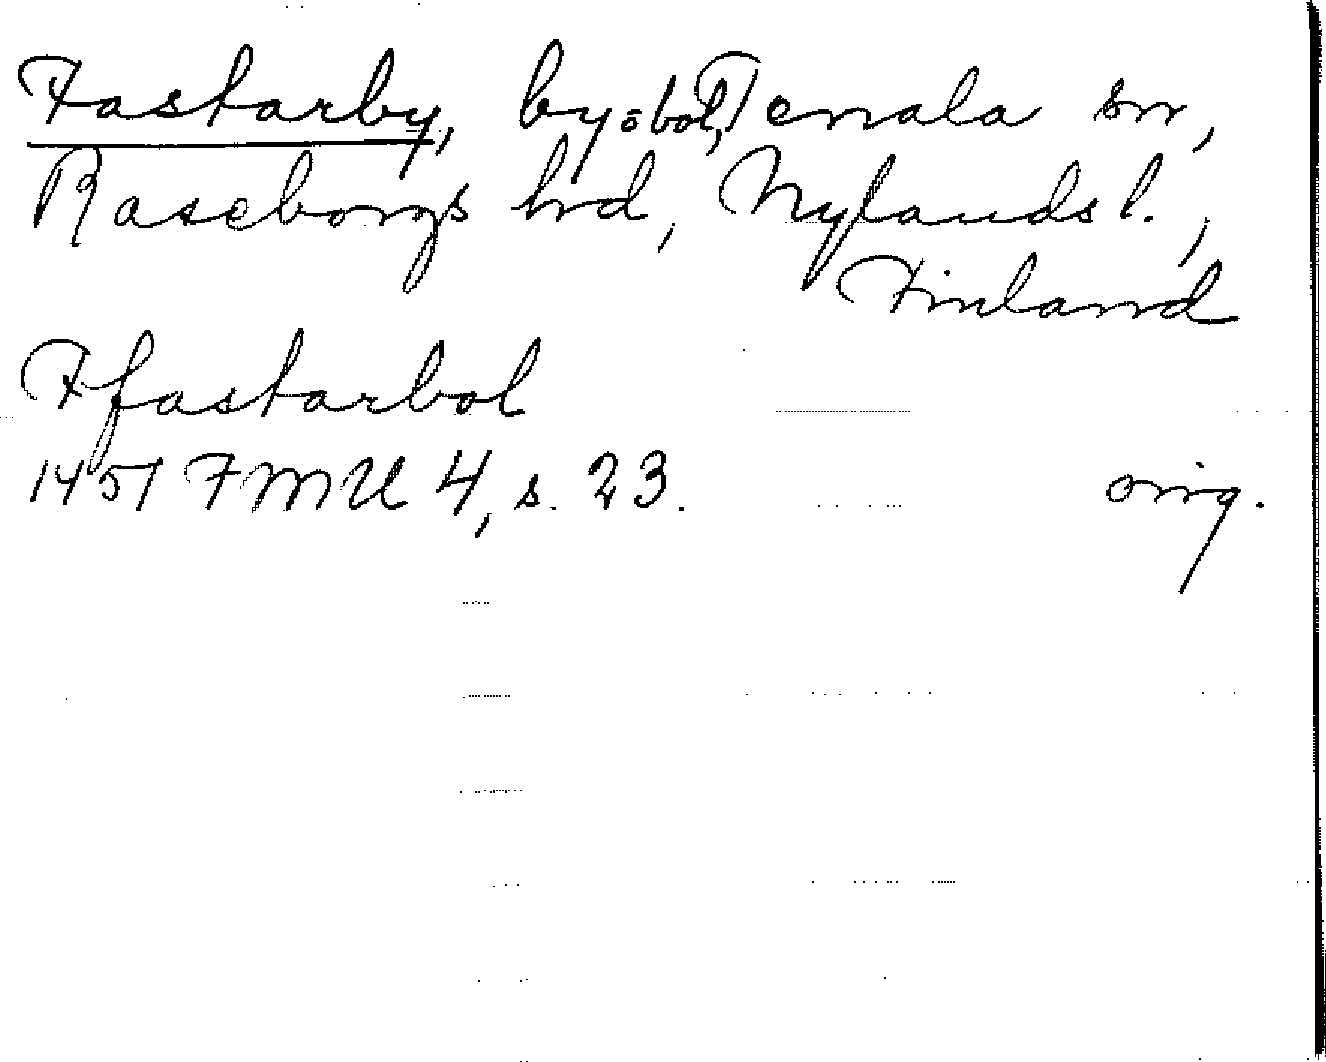 Fastarby, by o bol, Tenala sn,
Raseborgs hrd, Nylands l.,
Finland
Ffastarbol
1451 FMU 4, s. 23. orig.